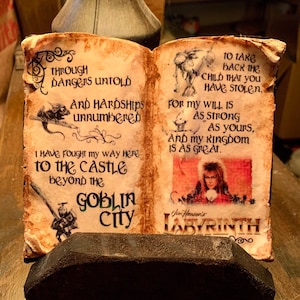 THROUGH
DANGERS UNTOLD
AND HARDSHIPS
UNNUMBERED
I HAVE FOUGHT MY WAY HERE
TO THE CASTLE
BEYOND THE
GOBLIN
CITY
TO TAKE
BACK THE
CHILD THAT YOU
HAVE STOLEN.
FOR MY WILL IS
AS STRONG
AS YOURS,
AND MY KINGDOM
IS AS GREAT.
Jim Henson's
LABYRINTH